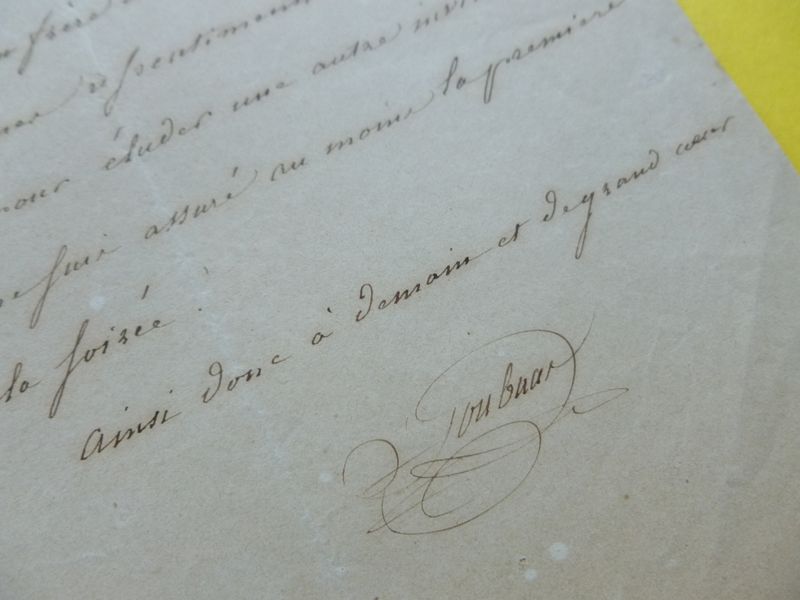 frère
ressentiment
pour éluder une autre
suis assuré au moins la première
la soirée.
ainsi donc à demain et de grand cœur